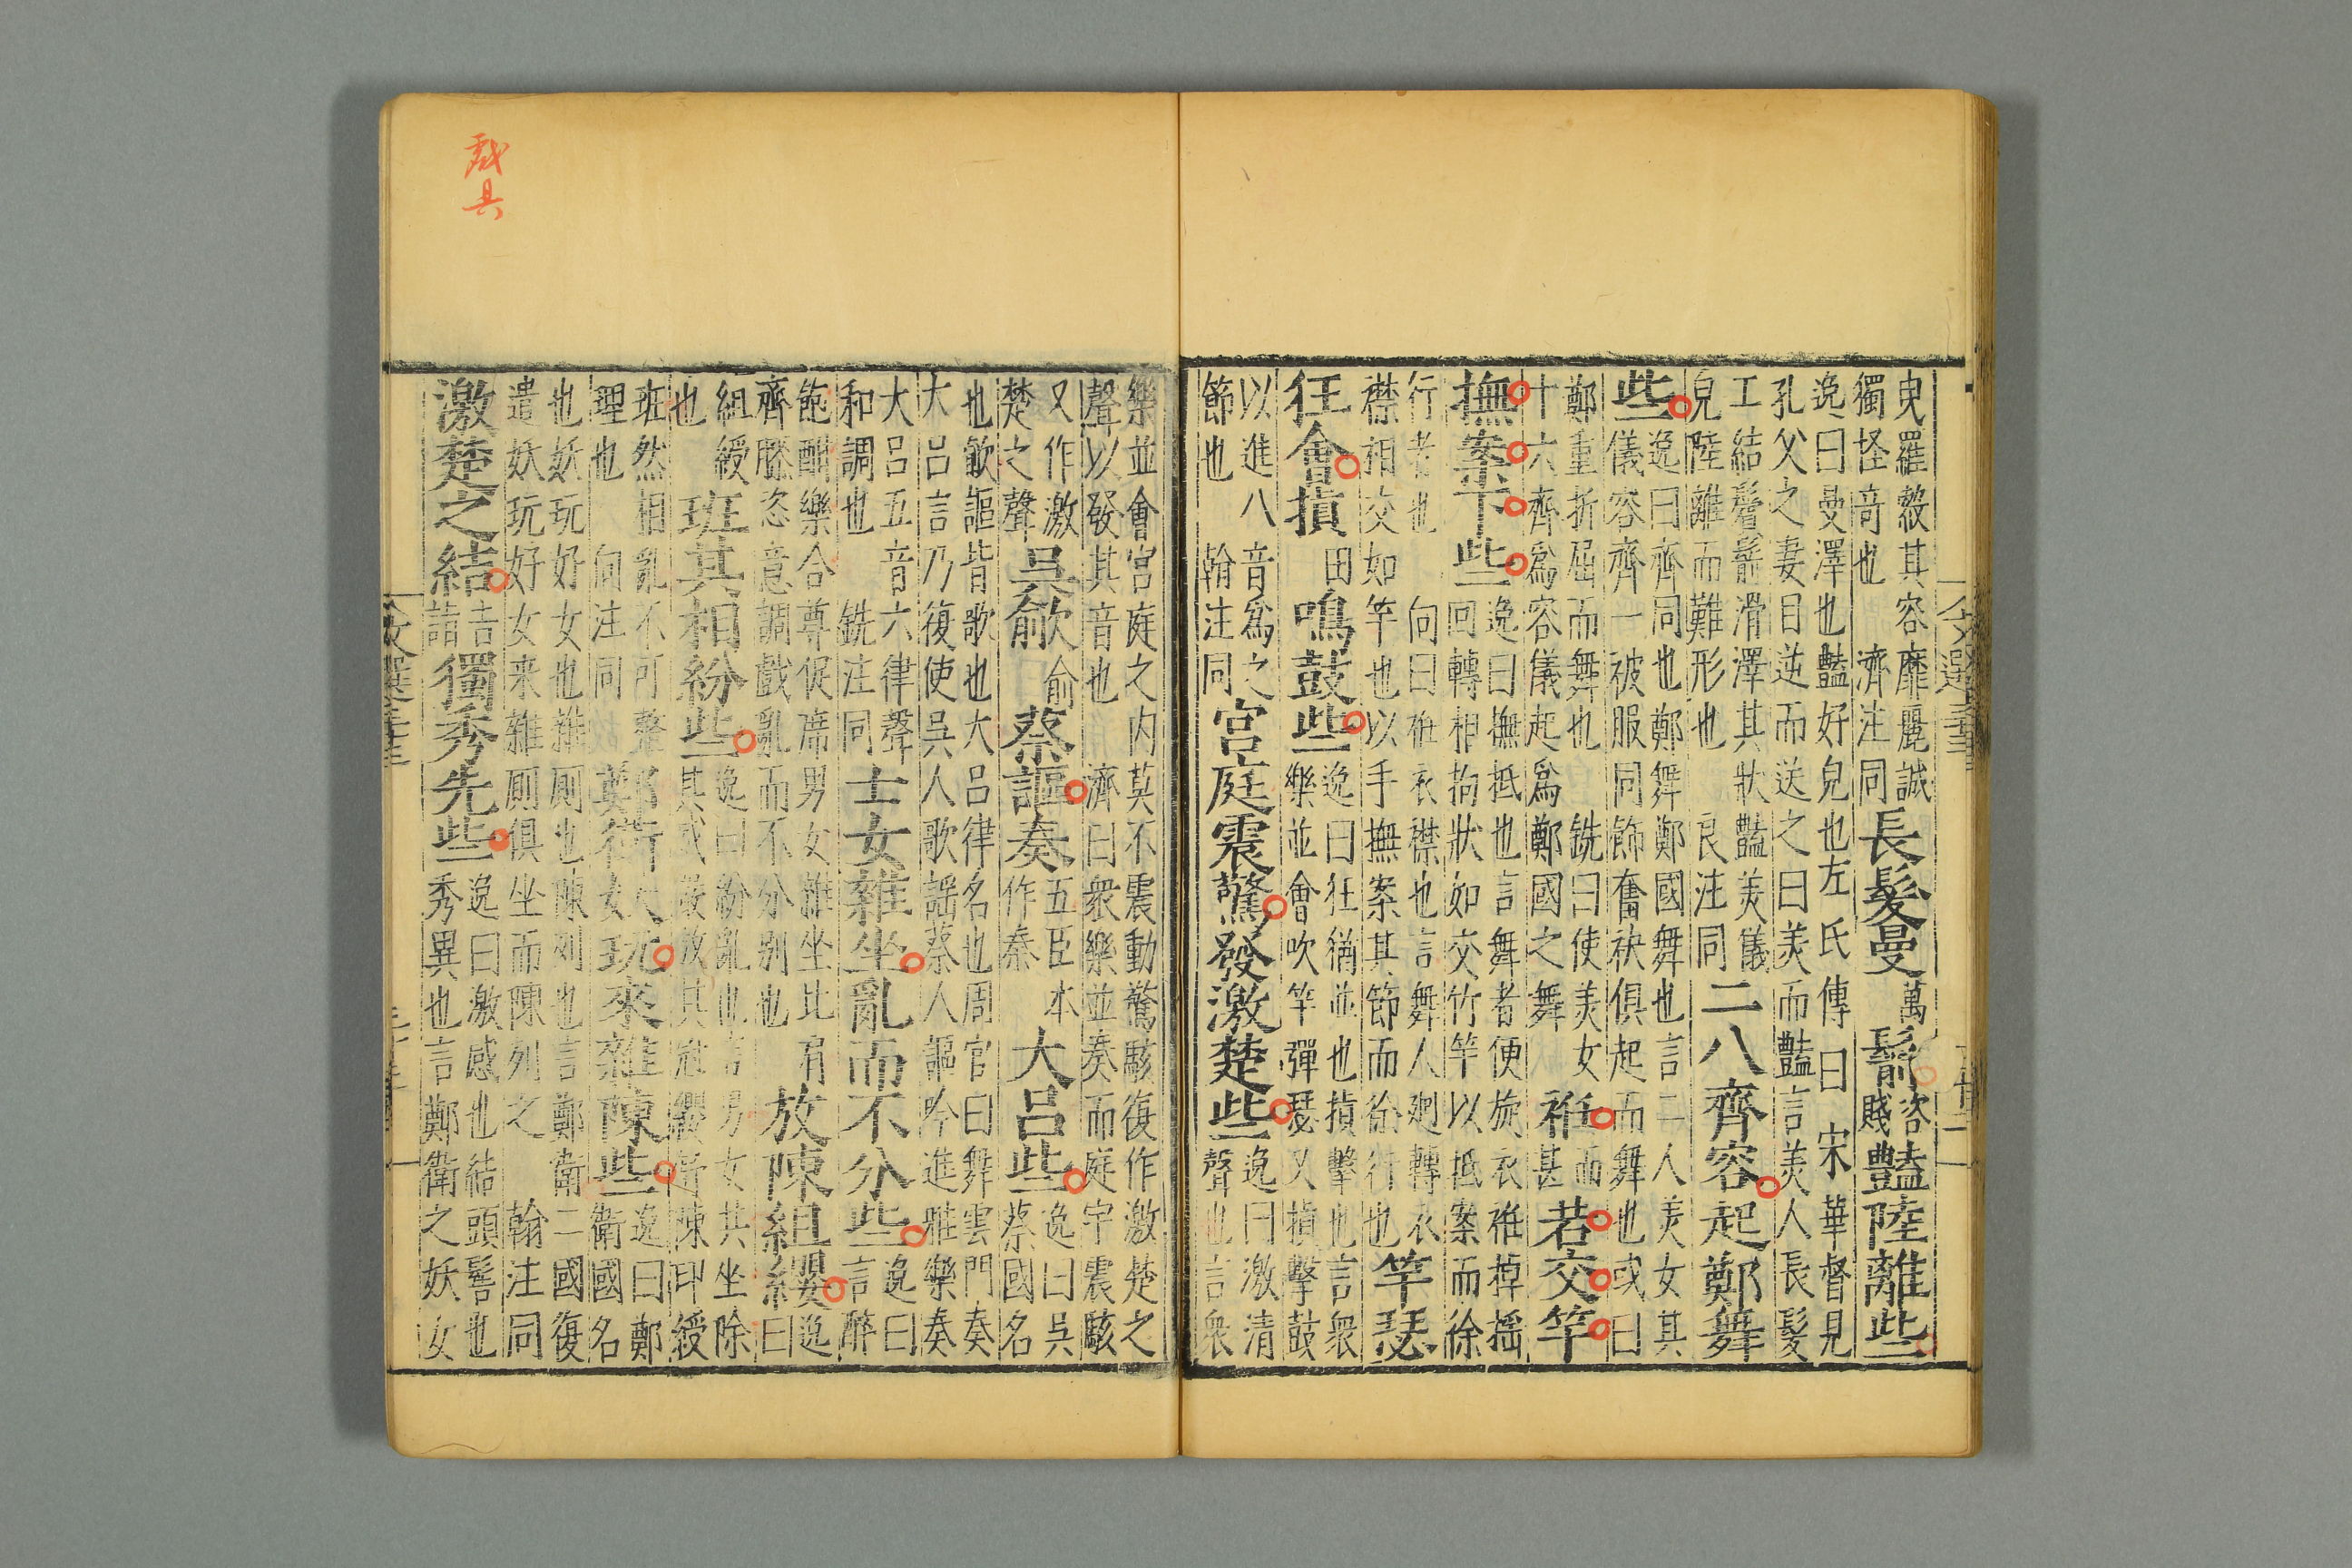 曳羅縠其容靡麗誠獨怪竒也 濟注同長髮曼萬鬋咨賤豔陸離些
逸曰曼澤也豔好皃也左氏傳曰宋華督見
孔父之妻目逆而送之曰美而豔言美人長髮
工結鬢鬋滑澤其狀豔美儀皃陸離而難形也 良注同二八齊容起鄭舞
些逸曰齊同也鄭舞鄭國舞也言二人美女其儀容齊一被服同飾奮袂俱起而舞也或曰
鄭重折屈而舞也 銑曰使美女十六齊爲容儀起爲鄭國之舞衽而甚若交竿
撫案下些逸曰撫抵也言舞者便旋衣衽掉摇回轉相拘狀如交竹竿以抵案而徐
行者也 向曰衽衣襟也言舞人廻轉衣襟相交如竿也以手撫案其節而徐行也竽瑟
狂會搷田鳴鼓些逸曰狂猶並也搷擊也言衆樂並會吹竽彈瑟又搷擊鼓
以進八音爲之節也 翰注同宮庭震驚發激楚些逸曰激清聲也言衆
樂並會宮庭之内莫不震動驚駭復作激楚之
聲以發其音也 濟曰衆樂並奏而庭宇震駭
又作激楚之聲吳歈俞蔡謳奏五臣本作秦大呂些逸曰吳蔡國名
也歈謳皆歌也大呂律名也周官曰舞雲門奏
大呂言乃復使吳人歌謡蔡人謳吟進雅樂奏
大呂五音六律聲和調也 銑注同士女雜坐亂而不分些逸曰言醉
飽酣樂合尊促席男女雜坐比肩齊膝恣意調戲亂而不分别也放陳組纓逸曰
組綬也班其相紛些逸曰紛亂也言男女共坐除其威嚴放其冠纓舒陳印綬
班然相亂不可整理也 向注同鄭衛妖玩來雜陳些逸曰鄭衛國名
也妖玩好女也雜厠也陳列也言鄭衛二國復
遣妖玩好女来雜厠俱坐而陳列之 翰注同
激楚之結吉詣獨秀先些逸曰激感也結頭髻也秀異也言鄭衛之妖女
戲具
文選